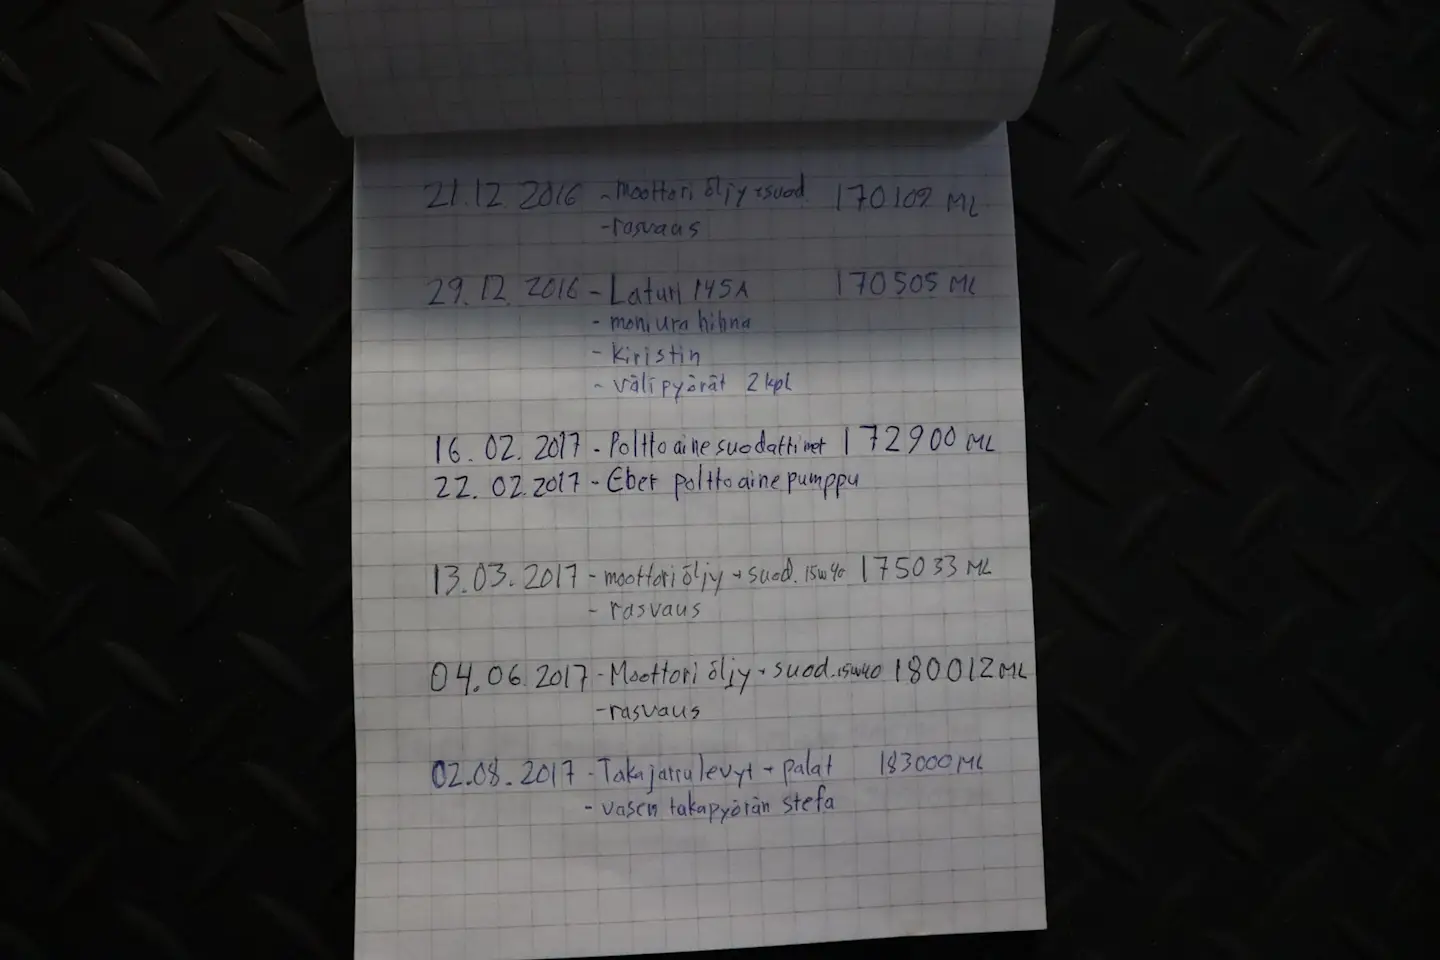 21.12 2016 - moottori öljy + suod 170109 ML
- rasvaus
29.12. 2016 - Laturi 145A 170505 ML
- moniura hihna
- kiristin
- välipyörät 2 kpl
16. 02. 2017 - Polttoaine suodattimet 172900 ML
22. 02. 2017 - Eber polttoaine pumppu
13.03. 2017 - moottori öljy + suod. 15w40 175033 ML
- rasvaus
04.06. 2017 - Moottori öljy + suod. 15w40 180012 ML
- rasvaus
02.08. 2017 - Takajarrulevyt + palat 183000 ML
- vasen takapyörän stefa